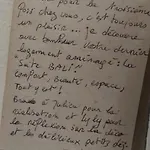 pour la troisième
fois chez vous, c'est toujours
un plaisir... je découvre
avec bonheur votre dernier
logement aménagé : la
"Suite BALI" !
Confort, Beauté, espaces,
Tout y est !
Bravo à Julien pour la
réalisation et Lyly pour
la réflexion sur la déco
et les délicieux petits déj